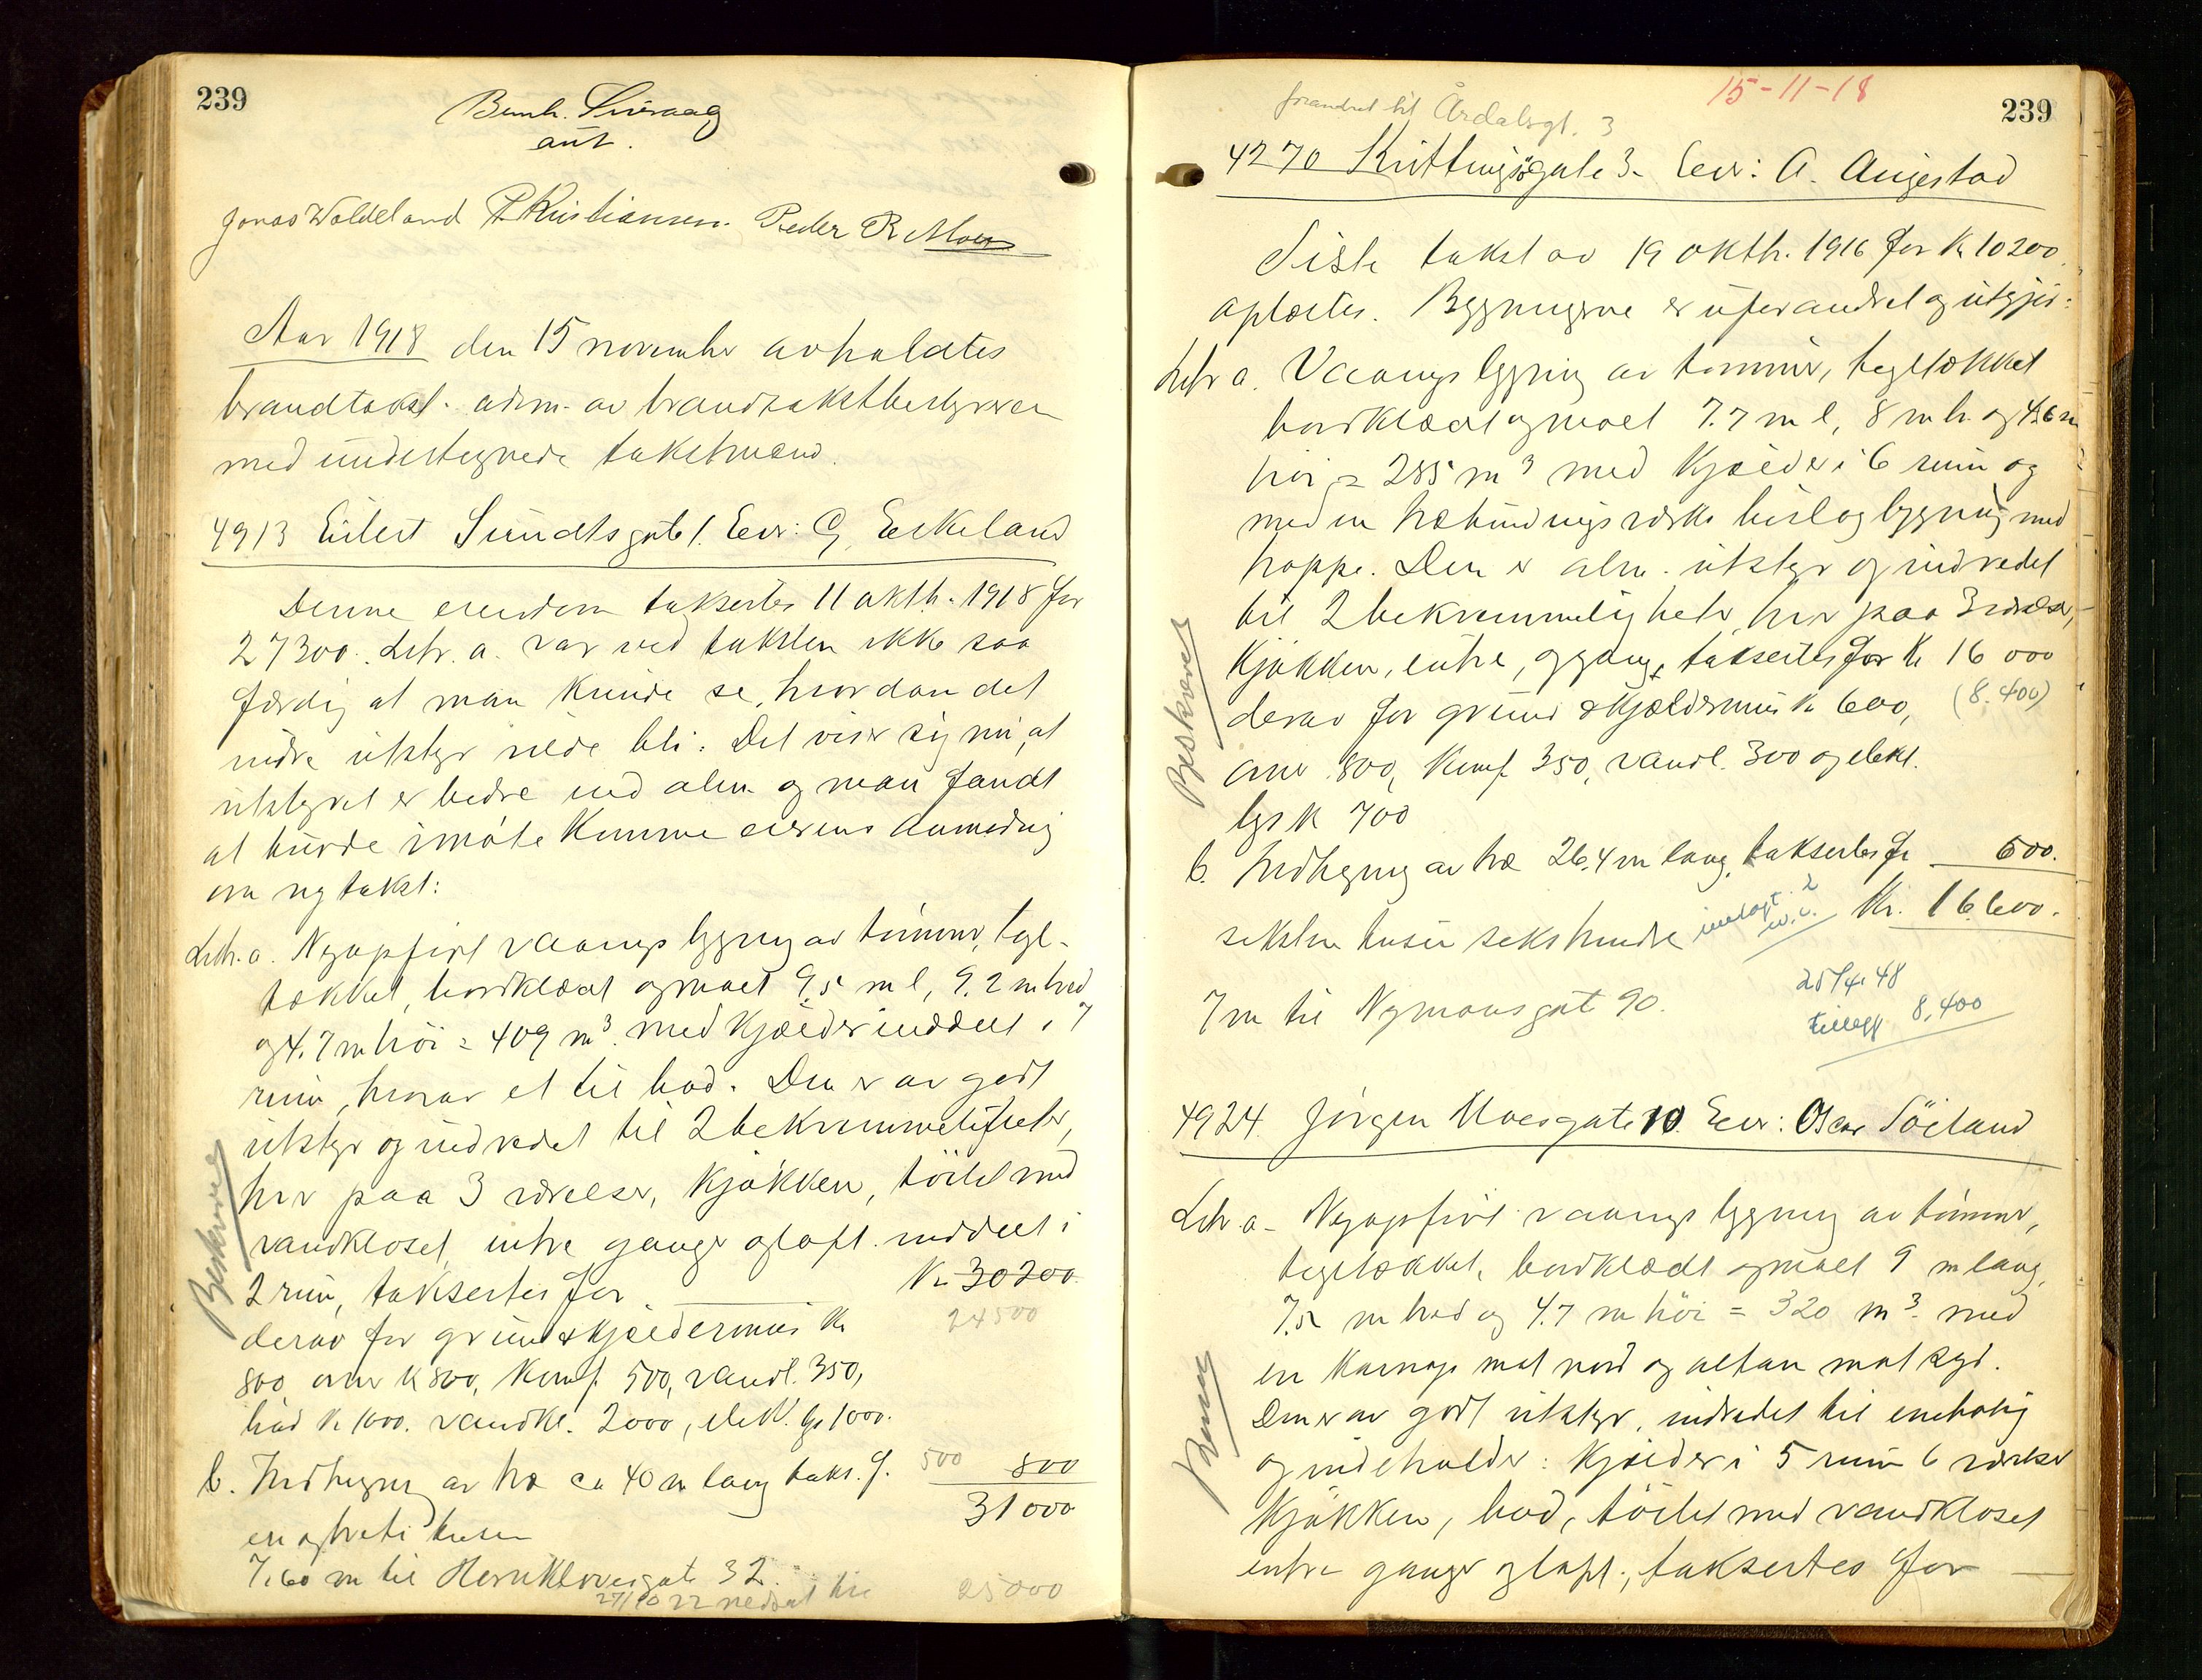 239
Bernh.
aut.
Jonas Waldeland P Kristiansen. Peder R Moen
Aar 1918 den 15 november avholdtes
brandtakst. adm. av brandtakstbestyreren
med undertegnede takstmænd.
4913 Eilert Sundtsgate 1. Eier: G. Eikeland
Denne eiendom taksertes 11 oktb. 1918 for
27300. Litr. a. var ved taksten ikke saa
færdig at man kunde se, hvordan det
indre utstyr vilde bli. Det viser sig nu, at
utstyret er bedre end alm. og man fandt
at burde imøte komme eierens anmodnig
om ny takst:
Litr. a. Nyopført vaanigs bygnig av tømmer, tegl-
tækket, bordklædt og maalt 9,5 m l, 9,2 m bred
og 4.7 m høi = 409 m³. med kjælder inddelt i 7
rum, hvorav et til bad. Den er av godt
utstyr og indredet til 2 bekvemmeligheter,
hver paa 3 værelser, kjøkken, toilet med
vandkloset, entre ganger og loft. inddelt i
2 rum, taksertes for Kr. 30200
derav for grund & kjældermur Kr 24500
800, ovner K 800, Komf. 500, vandl. 350,
bad K 1000. vandkl. 2000, elek. lys 1000.
b. Indhegnig av træ ca 40 m lang takst. f. 500 800
en og treti tusen 31000
7,60 m til Herr Kloresgate 32.
27/10 22 nedsat til 25000
Beskrevet
15-11-18
239
forandret til Årdalsgt. 3
4270 gate 3. Eier: A. Auestad
Siste takst av 19 oktb. 1916 for K 10200
oplæstes. Bygnigerne er uforandret og utgjør:
Litr a. Vaanigs bygnig av tømmer, tegltækket
bordklædt og maalt 7.7 m l, 8 m br. og 4.6 m
høi = 285 m³ med kjælder i 6 rum og
med en bislag bygnig med
trappe. Den er alm. utstyr og indredet
til 2 bekvemmeligheter, hver paa 3 værelser,
kjøkken, entre, og gang, taksertes for K 16 000
derav for grund & kjældermur K 600, (8.400)
ovner 800, Komf. 350, vandl. 300 og elekt.
lys K 700
b. Indhegnig av træ 26,4 m lang, taksertes for 600.
seksten tusen seks hundre innlagt 2 w.c. Kr. 16.600.
7 m til Nymansgate 90.
25/4 48
tillegg 8,400
Beskrevet
4924. Jörgen Moesgate 10. Eier: Oscar Söiland
Litr a. Nyopført vaanigs bygnig av tømmer,
tegltækket, bordklædt og maalt 9 m lang,
7,5 m bred og 4.7 m høi = 320 m³. med
en karnap mot nord og altan mot syd.
Den er av godt utstyr, indredet til enebolig
og indeholder: kjælder i 5 rum 6 værelser
kjøkken, bad, toilet med vandkloset
entre ganger og loft., taksertes for